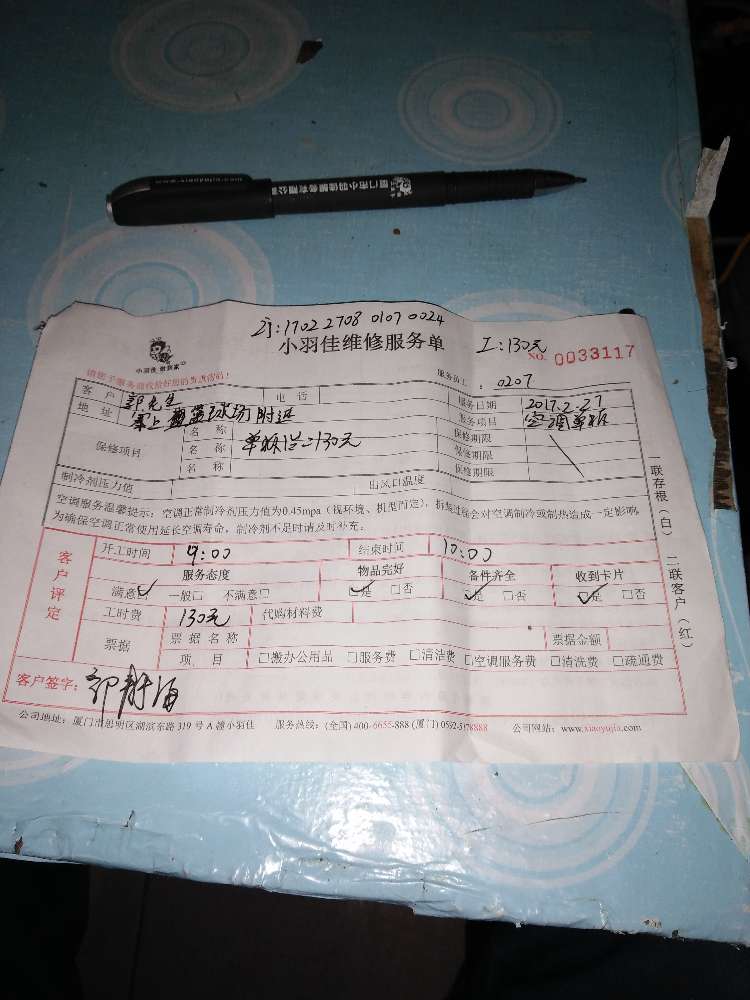 厦门市小羽佳家政有限公司
订:1702 2708 0107 0024
小羽佳维修服务单 工:130元
小羽佳 搬到家
NO. 0033117
服务员工: 0207
客户 郭先生 电话 服务日期 2017.2.27
地址 附近 服务项目 空调单拆
保修项目 名称 单拆 130元 保修期限
名称 保修期限
名称 保修期限
制冷剂压力值 出风口温度
空调服务温馨提示:空调正常制冷剂压力值为0.45mpa(视环境、机型而定),拆装过程会对空调制冷或制热造成一定影响
为确保空调正常使用延长空调寿命,制冷剂不足时请及时补充。
客户评定
开工时间 9:00 结束时间 10:00
服务态度 物品完好 备件齐全 收到卡片
满意☑ 一般□ 不满意□ ☑是 □否 ☑是 □否 ☑是 □否
工时费 130元 代购材料费
票据 票据名称 票据金额
项目 □搬办公用品 □服务费 □清洁费 □空调服务费 □清洗费 □疏通费
客户签字:
公司地址:厦门市思明区湖滨东路319号A幢小羽佳 服务热线:(全国)400-6655-888 (厦门)0592-5178888 公司网站:www.xiaoyujia.com
一联存根(白) 二联客户(红)